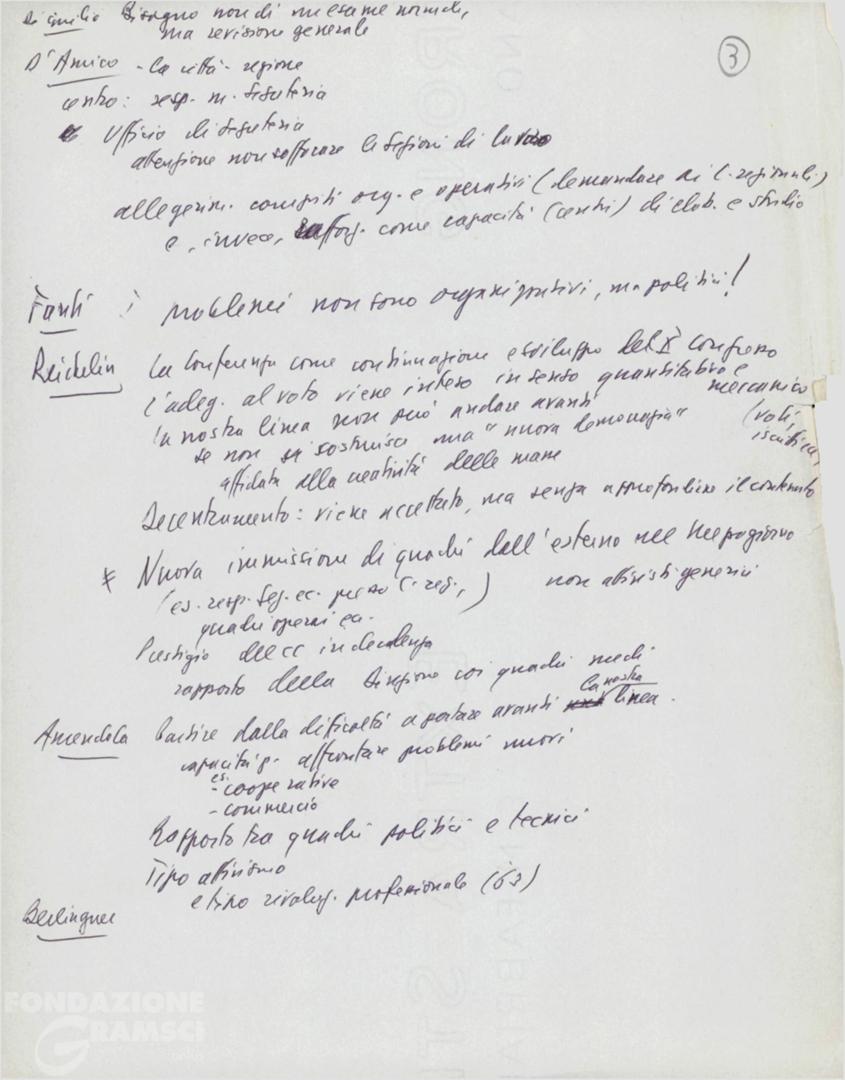 Di Giulio Bisogno non di un esame normale,
ma revisione generale
3
D'Amico - La città-regione
centro: resp. m. segreteria
Ufficio di segreteria
attenzione non soffocare le sezioni di lavoro
allegerim. compiti org. e operativi (demandare ai C. regionali)
e, invece, rafforz. come capacità (centri) di elab. e studio
Fanti i problemi non sono organizzativi, ma politici!
Reichlin La Conferenza come continuazione e sviluppo del X congresso
l'adeg. al voto viene inteso in senso quantitativo e
meccanico
(voti,
la nostra linea non può andare avanti
se non si costruisce una "nuova democrazia"
affidata alla creatività delle masse
Decentramento: viene accettato, ma senza approfondire il contenuto
* Nuova immissione di quadri dall'esterno nel Mezzogiorno
(es. resp. seg. ec. presso C. reg.,) non attivisti generici
quadri operai ec.
Prestigio del CC in decadenza
rapporto della Direzione coi quadri medi
Amendola Partire dalla difficoltà a portare avanti la nostra linea.
capacità p. affrontare problemi nuovi
es.
- cooperative
- commercio
Rapporto tra quadri politici e tecnici
Tipo attivismo
e tipo rivoluz. professionale (63)
Berlinguer
FONDAZIONE
GRAMSCI